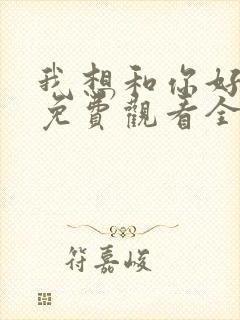 我想和你好
免費觀看全
符嘉峻